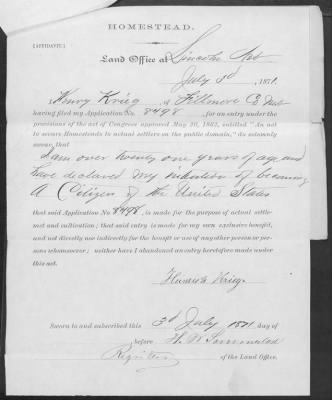 HOMESTEAD.
(AFFIDAVIT.)
Land Office at Lincoln Neb
July 3d, 1871.
I, Henry Krieg, of Fillmore Co Neb
having filed my Application No. 8498, for an entry under the
provisions of the act of Congress approved May 20, 1862, entitled "An act
to secure Homesteads to actual settlers on the public domain," do solemnly
swear, that
I am over twenty one years of age and
have declared my intention of becoming
A Citizen of the United States
that said Application No. 8498, is made for the purpose of actual settle-
ment and cultivation; that said entry is made for my own exclusive benefit,
and not directly nor indirectly for the benefit or use of any other person or per-
sons whomsoever; neither have I abandoned an entry heretofore made under
this act.
Krieg
Sworn to and subscribed this 3d July 1871 day of
before
Register of the Land Office.